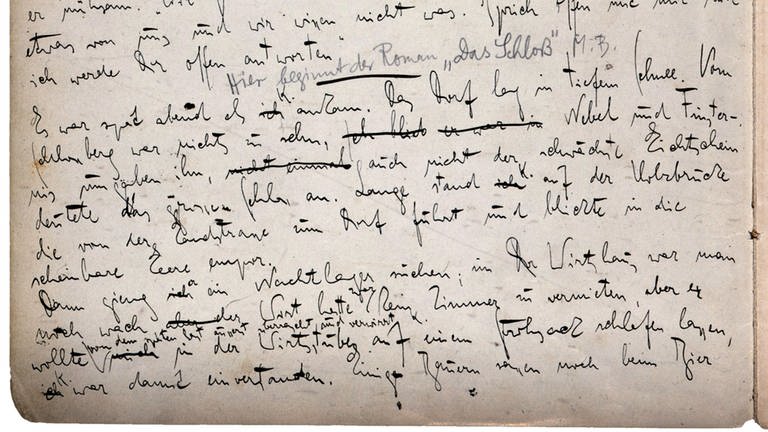 etwas von uns und wir wissen nicht was. Sprich offen mit mir und
ich werde Dir offen antworten"
Hier beginnt der Roman „Das Schloß" M.B.
Es war spät abend als ich K. ankam. Das Dorf lag in tiefem Schnee. Vom
Schlossberg war nichts zu sehn, ich blieb er war in Nebel und Finster-
nis umgaben ihn, nicht einmal auch nicht der schwächste Lichtschein
deutete das grosse Schloss an. Lange stand ich K. auf der Holzbrücke
die von der Landstrasse zum Dorf führt und blickte in die
scheinbare Leere empor.
Dann gieng ich er ein Nachtlager suchen; im Wirtshaus war man
noch wach aber der Wirt hatte zwar kein Zimmer zu vermieten, aber er
wollte von dem späten Gast äusserst überrascht und verwirrt K.
mich in der Wirtsstube auf einem Strohsack schlafen lassen,
ich K. war damit einverstanden. Einige Bauern waren noch beim Bier